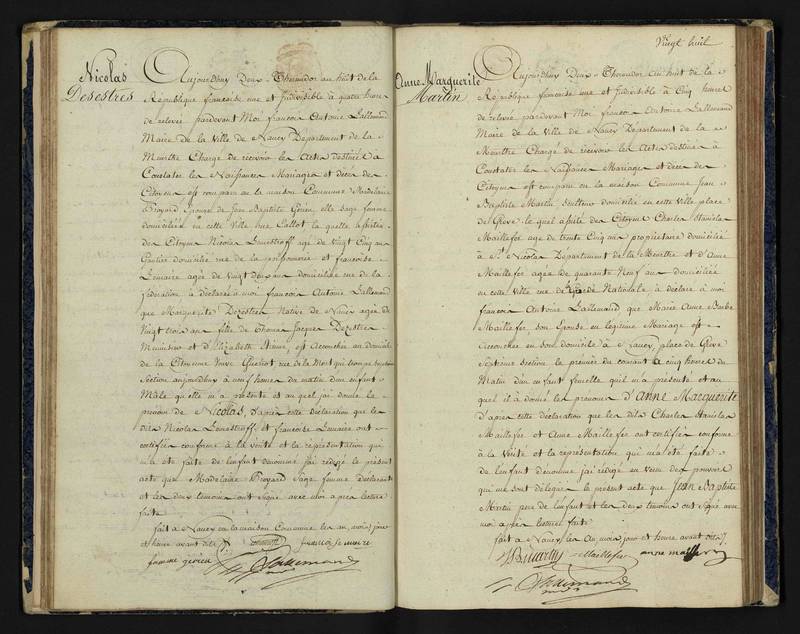 Nicolas
Desestres
Aujourdhuy Deux Thermidor an huit de la
République francoise une et Indivisible à quatre heures
de relevée pardevant Moi francois Antoine Lallemand
Maire de la Ville de Nancy Departement de la
Meurthe Chargé de recevoir les Actes destinés à
Constater les Naissances Mariages et décès des
Citoyens est comparu en la maison Commune Madelaine
Broyard Epouse de Jean Baptiste femme
domiciliée en cette Ville rue Callot la quelle assistée
du Citoyen Nicolas agé de Vingt Cinq ans
domicilié rue de la et francoise
Lemaire agée de Vingt Deux ans domiciliée rue de la
fédération à déclarée à moi francois Antoine Lallemand
que Marguerite Dezestres Native de Nancy agée de
Vingt trois ans fille de Thomas Jacques Dezestres
Menuisier et d'Elizabeth est accouchée au domicile
de la Citoyenne Veuve rue de la
Section aujourdhuy à neuf heures du matin d'un enfant
Male qu'elle m'a présenté et au quel j'ai donné le
prenom de Nicolas, d'après cette déclaration que les
dits Nicolas et francoise Lemaire ont
certifiée conforme à la vérité et la représentation qui
m'a été faite de l'enfant dénommé j'ai rédigé le présent
acte que Madelaine Broyard Sage femme déclarante
et les deux temoins ont signé avec moi après lecture
faite
fait à Nancy en la maison Commune les an, mois, jour
et heure avant dits
francoise lemaire
femme
Lallemand
Vingt huit
Anne Marguerite
Martin
Aujourdhuy Deux Thermidor an huit de la
République francoise une et Indivisible à Cinq heures
de relevée pardevant Moi francois Antoine Lallemand
Maire de la Ville de Nancy Departement de la
Meurthe Chargé de recevoir les Actes destinés à
Constater les Naissances Mariages et décès des
Citoyens est comparu en la maison Commune Jean
Baptiste Martin domicilié en cette Ville place
de Grève le quel assisté des Citoyens Charles Stanislas
Maillefer agé de trente Cinq ans propriétaire domicilié
à St. Nicolas Departement de la Meurthe et d'Anne
Maillefer agée de quarante Neuf ans domiciliée
en cette Ville rue de la Garde Nationale à déclaré à moi
francois Antoine Lallemand que Marie Anne Barbe
Maillefer, son Epouse en légitime Mariage est
accouchée en son domicile à Nancy, place de Grève
Septième section le premier du courant à cinq heures du
Matin d'un enfant femelle qu'il m'a présenté et au
quel il à donné les prenoms d'ANNE Marguerite
D'après cette déclaration que les dits Charles Stanislas
Maillefer et Anne Maillefer ont certifiée conforme
à la Vérité et la représentation qui m'a été faite
de l'enfant dénommé j'ai rédigé en vertu des pouvoirs
qui me sont délégués le présent acte que Jean Baptiste
Martin père de l'enfant et les deux témoins ont signé avec
moi après lecture faite
fait à Nancy les an, mois, jour et heure avant dits
JB martin Maillefer anne maillefer
Lallemand